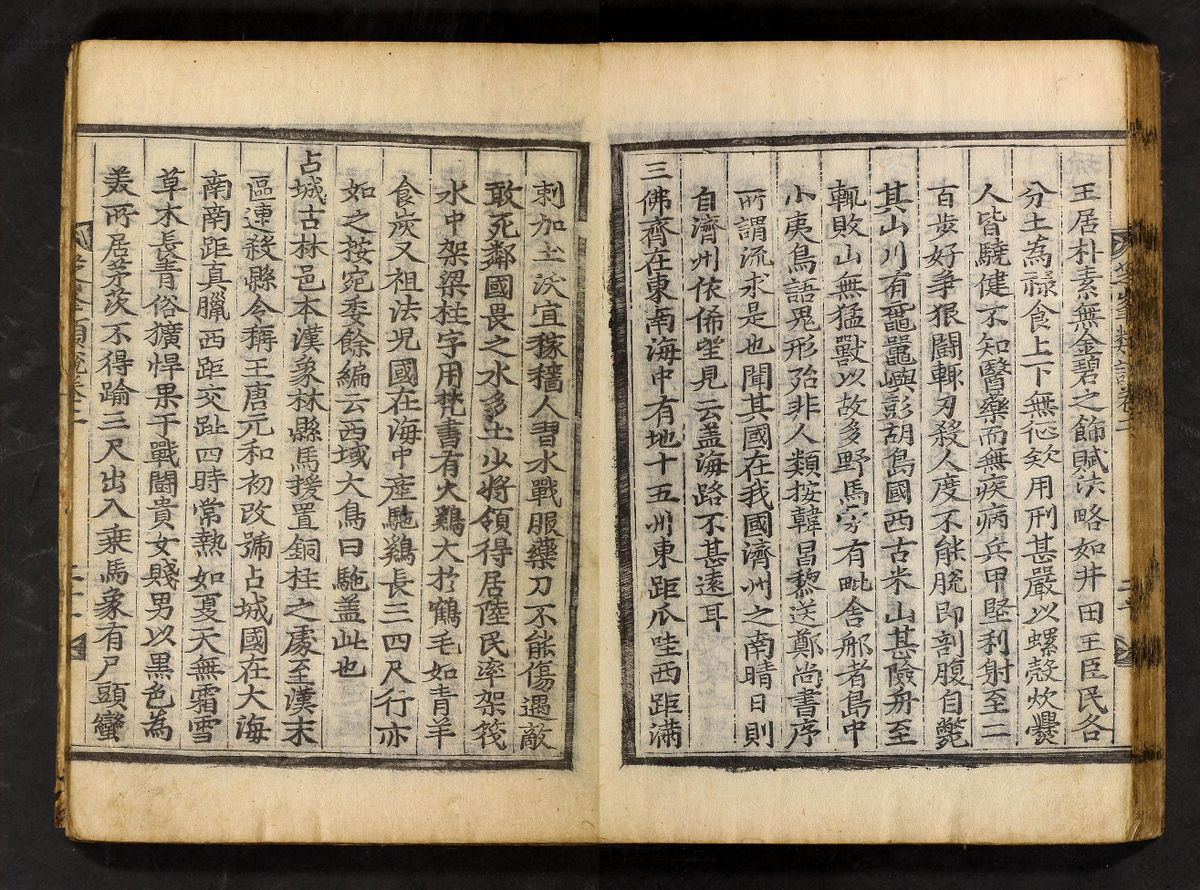 王居朴素無金碧之飾賦法略如井田王臣民各
分土為祿食上下無征歛用刑甚嚴以螺殼炊爨
人皆驍健不知醫藥而無疾病兵甲堅利射至二
百步好爭狠鬪輒刃殺人度不能脫即剖腹自斃
其山川有黿鼉嶼彭胡島國西古米山甚險舟至
輒敗山無猛獸以故多野馬字有毗舍那者島中
小夷鳥語鬼形殆非人類按韓昌黎送鄭尚書序
所謂流求是也聞其國在我國濟州之南晴日則
自濟州依俙望見云盖海路不甚遠耳
三佛齊在東南海中有地十五州東距瓜哇西距満
剌加土沃宜稼穡人習水戰服藥刀不能傷遇敵
敢死鄰國畏之水多土少將領得居陸民率架筏
水中架梁柱字用梵書有火鷄大於鶴毛如青羊
食炭又祖法児國在海中産駞鷄長三四尺行亦
如之按宛委餘編云西域大鳥曰駞盖此也
占城古林邑本漢象林縣馬援置銅柱之處至漢末
區連殺縣令稱王唐元和初改號占城國在大海
南南距真臘西距交趾四時常熱如夏天無霜雪
草木長青俗獷悍果于戰鬪貴女賤男以黑色為
美所居茅茨不得踰三尺出入乗馬象有尸頭蠻